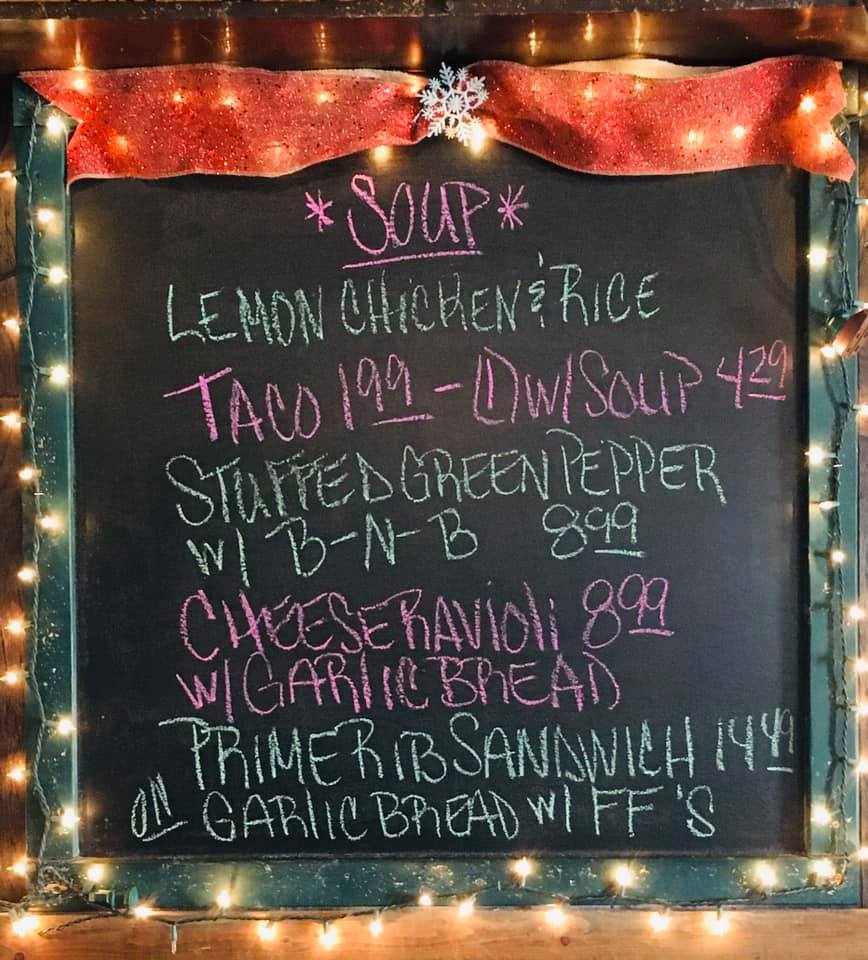 *SOUP*
LEMON CHICKEN & RICE
TACO 1 99 - (1) W/ SOUP 4 29
STUFFED GREEN PEPPER
W/ B-N-B 8 99
CHEESE RAVIOLI 8 99
W/ GARLIC BREAD
PRIME RIB SANDWICH 14 49
ON GARLIC BREAD W/ FF'S